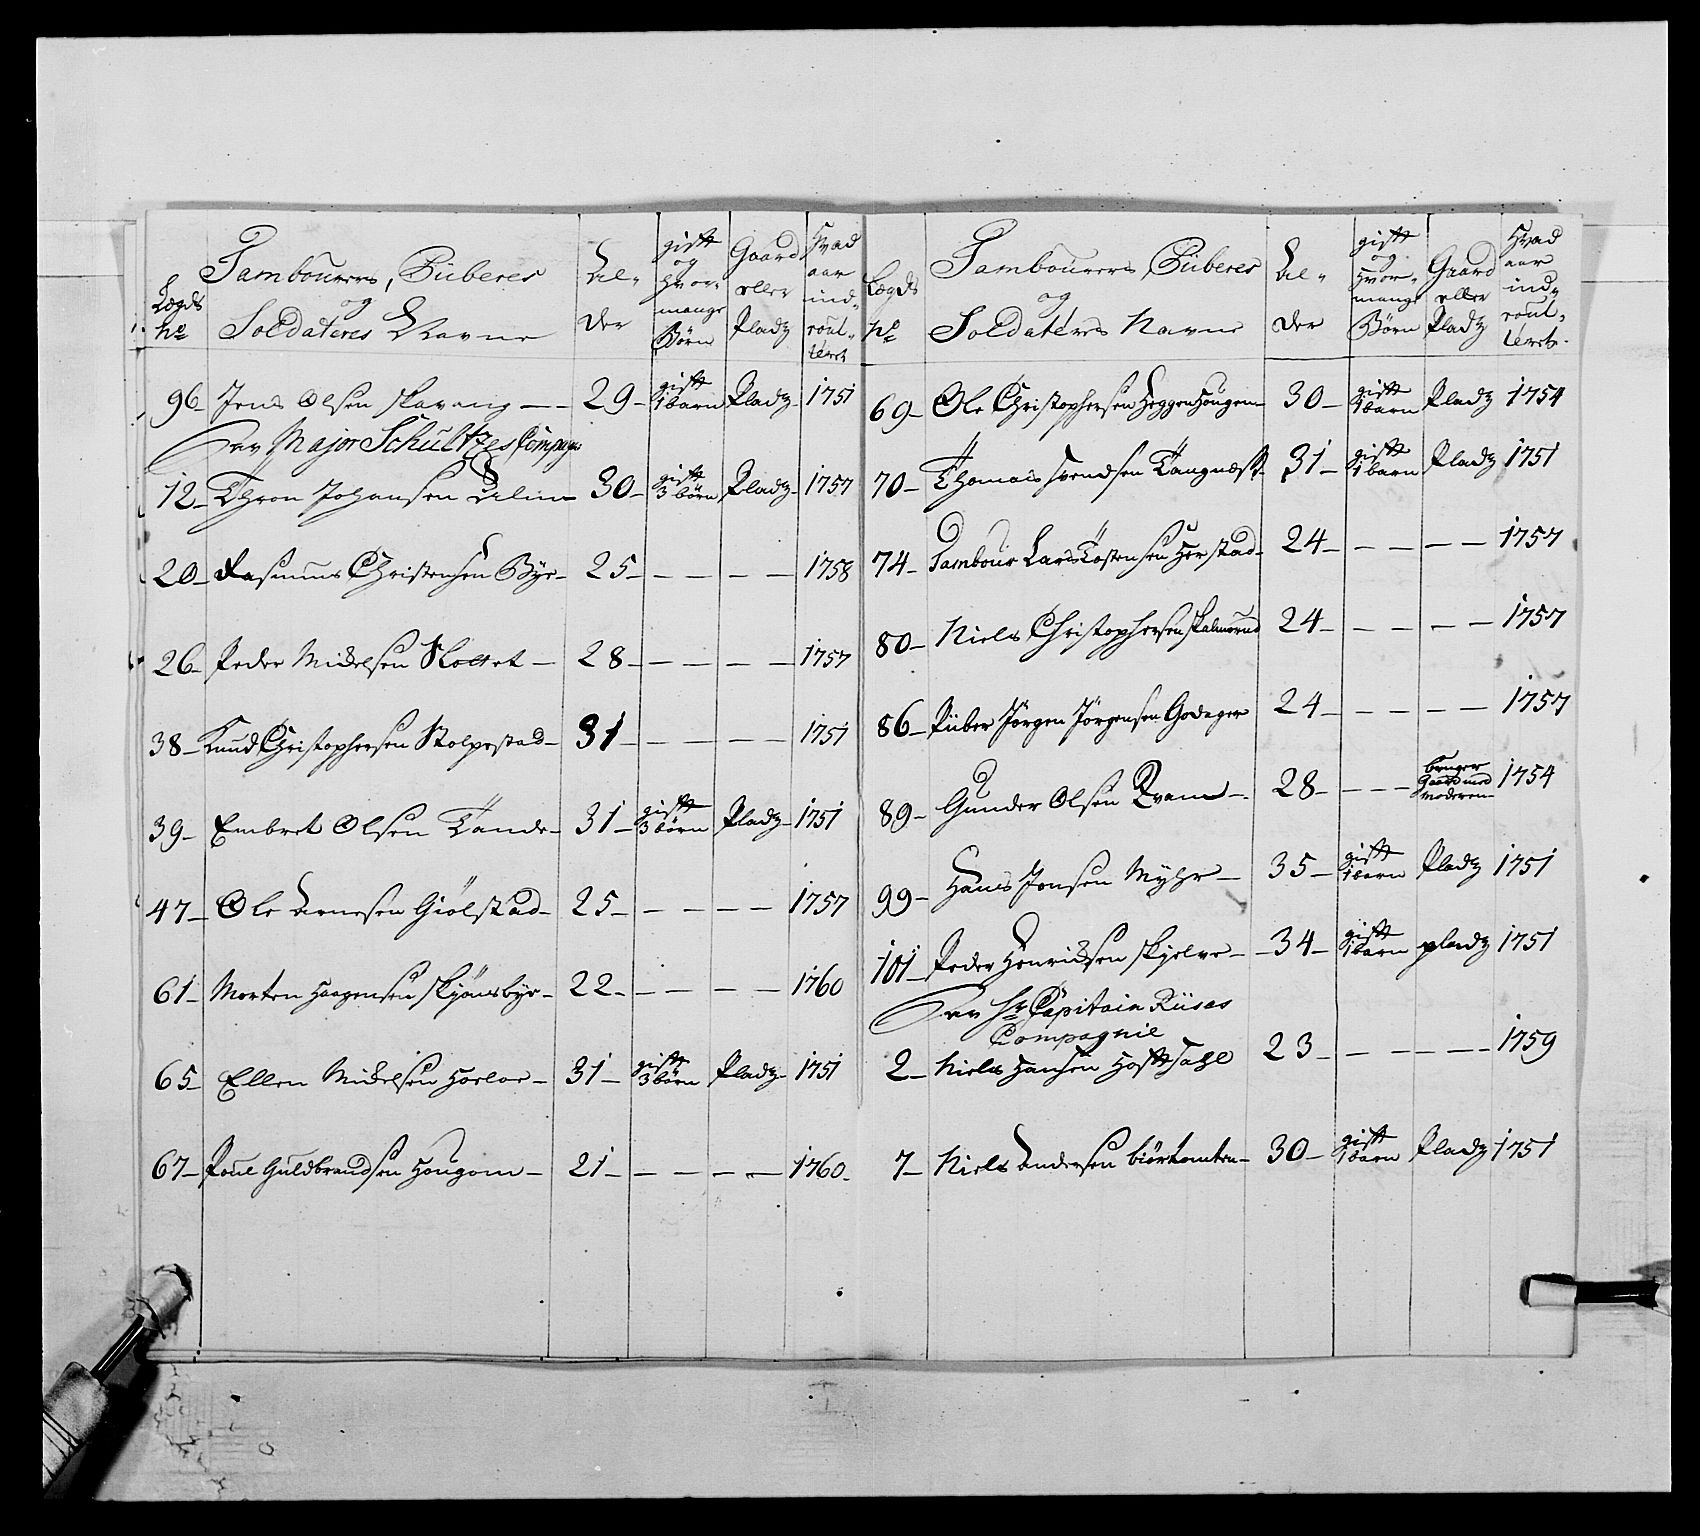 Lægds
No
Tambourers, Piiberes
og
Soldateres Navne
Al-
der
gift
og
hvor-
mange
Børn
Gaard
eller
Pladz
Hvad
aar
ind-
roul-
leret
96 Jens Olsen Skavang 29 gift 1 barn Pladz 1751
Major Schultzes Compag:
12 Thron Johansen Alm 30 gift 3 børn Pladz 1757
20 Rasmus Christensen Bye 25 1758
26 Peder Mickelsen Slottet 28 1757
38 Knud Christophersen Stolpestad 31 1751
39 Embret Olsen Tande 31 gift 3 børn Pladz 1751
47 Ole Arnesen Giølstad 25 1757
61 Morten Haagensen Skjønsbye 22 1760
65 Ellen Mickelsen Horloe 31 gift 3 børn Pladz 1751
67 Poul Guldbrandsen Hougom 21 1760
Lægds
No
Tambourers, Piiberes
og
Soldateres Navne
Al-
der
gift
og
hvor-
mange
Børn
Gaard
eller
Pladz
Hvad
aar
ind-
roul-
leret
69 Ole Christophersen Heggenhougen 30 gift 1 barn Pladz 1754
70 Thomas Svendsen Tangnæss 31 gift 1 barn Pladz 1751
74 Tambour Lars Tostensen Herstad 24 1757
80 Niels Christophersen Skalmerud 24 1757
86 Piiber Jørgen Jørgensen Godager 24 1757
89 Gunder Olsen Qvam 28 bruger Gaard med Moderen 1754
99 Hans Jonsen Myhr 35 gift 1 barn Pladz 1751
101 Peder Henricksen Skjelve 34 gift 1 barn pladz 1751
Hr Capitain Riises
Compagnie
2 Niels Hansen Hoftsahl 23 1759
7 Niels Andersen Biørtomten 30 gift 1 barn Pladz 1751